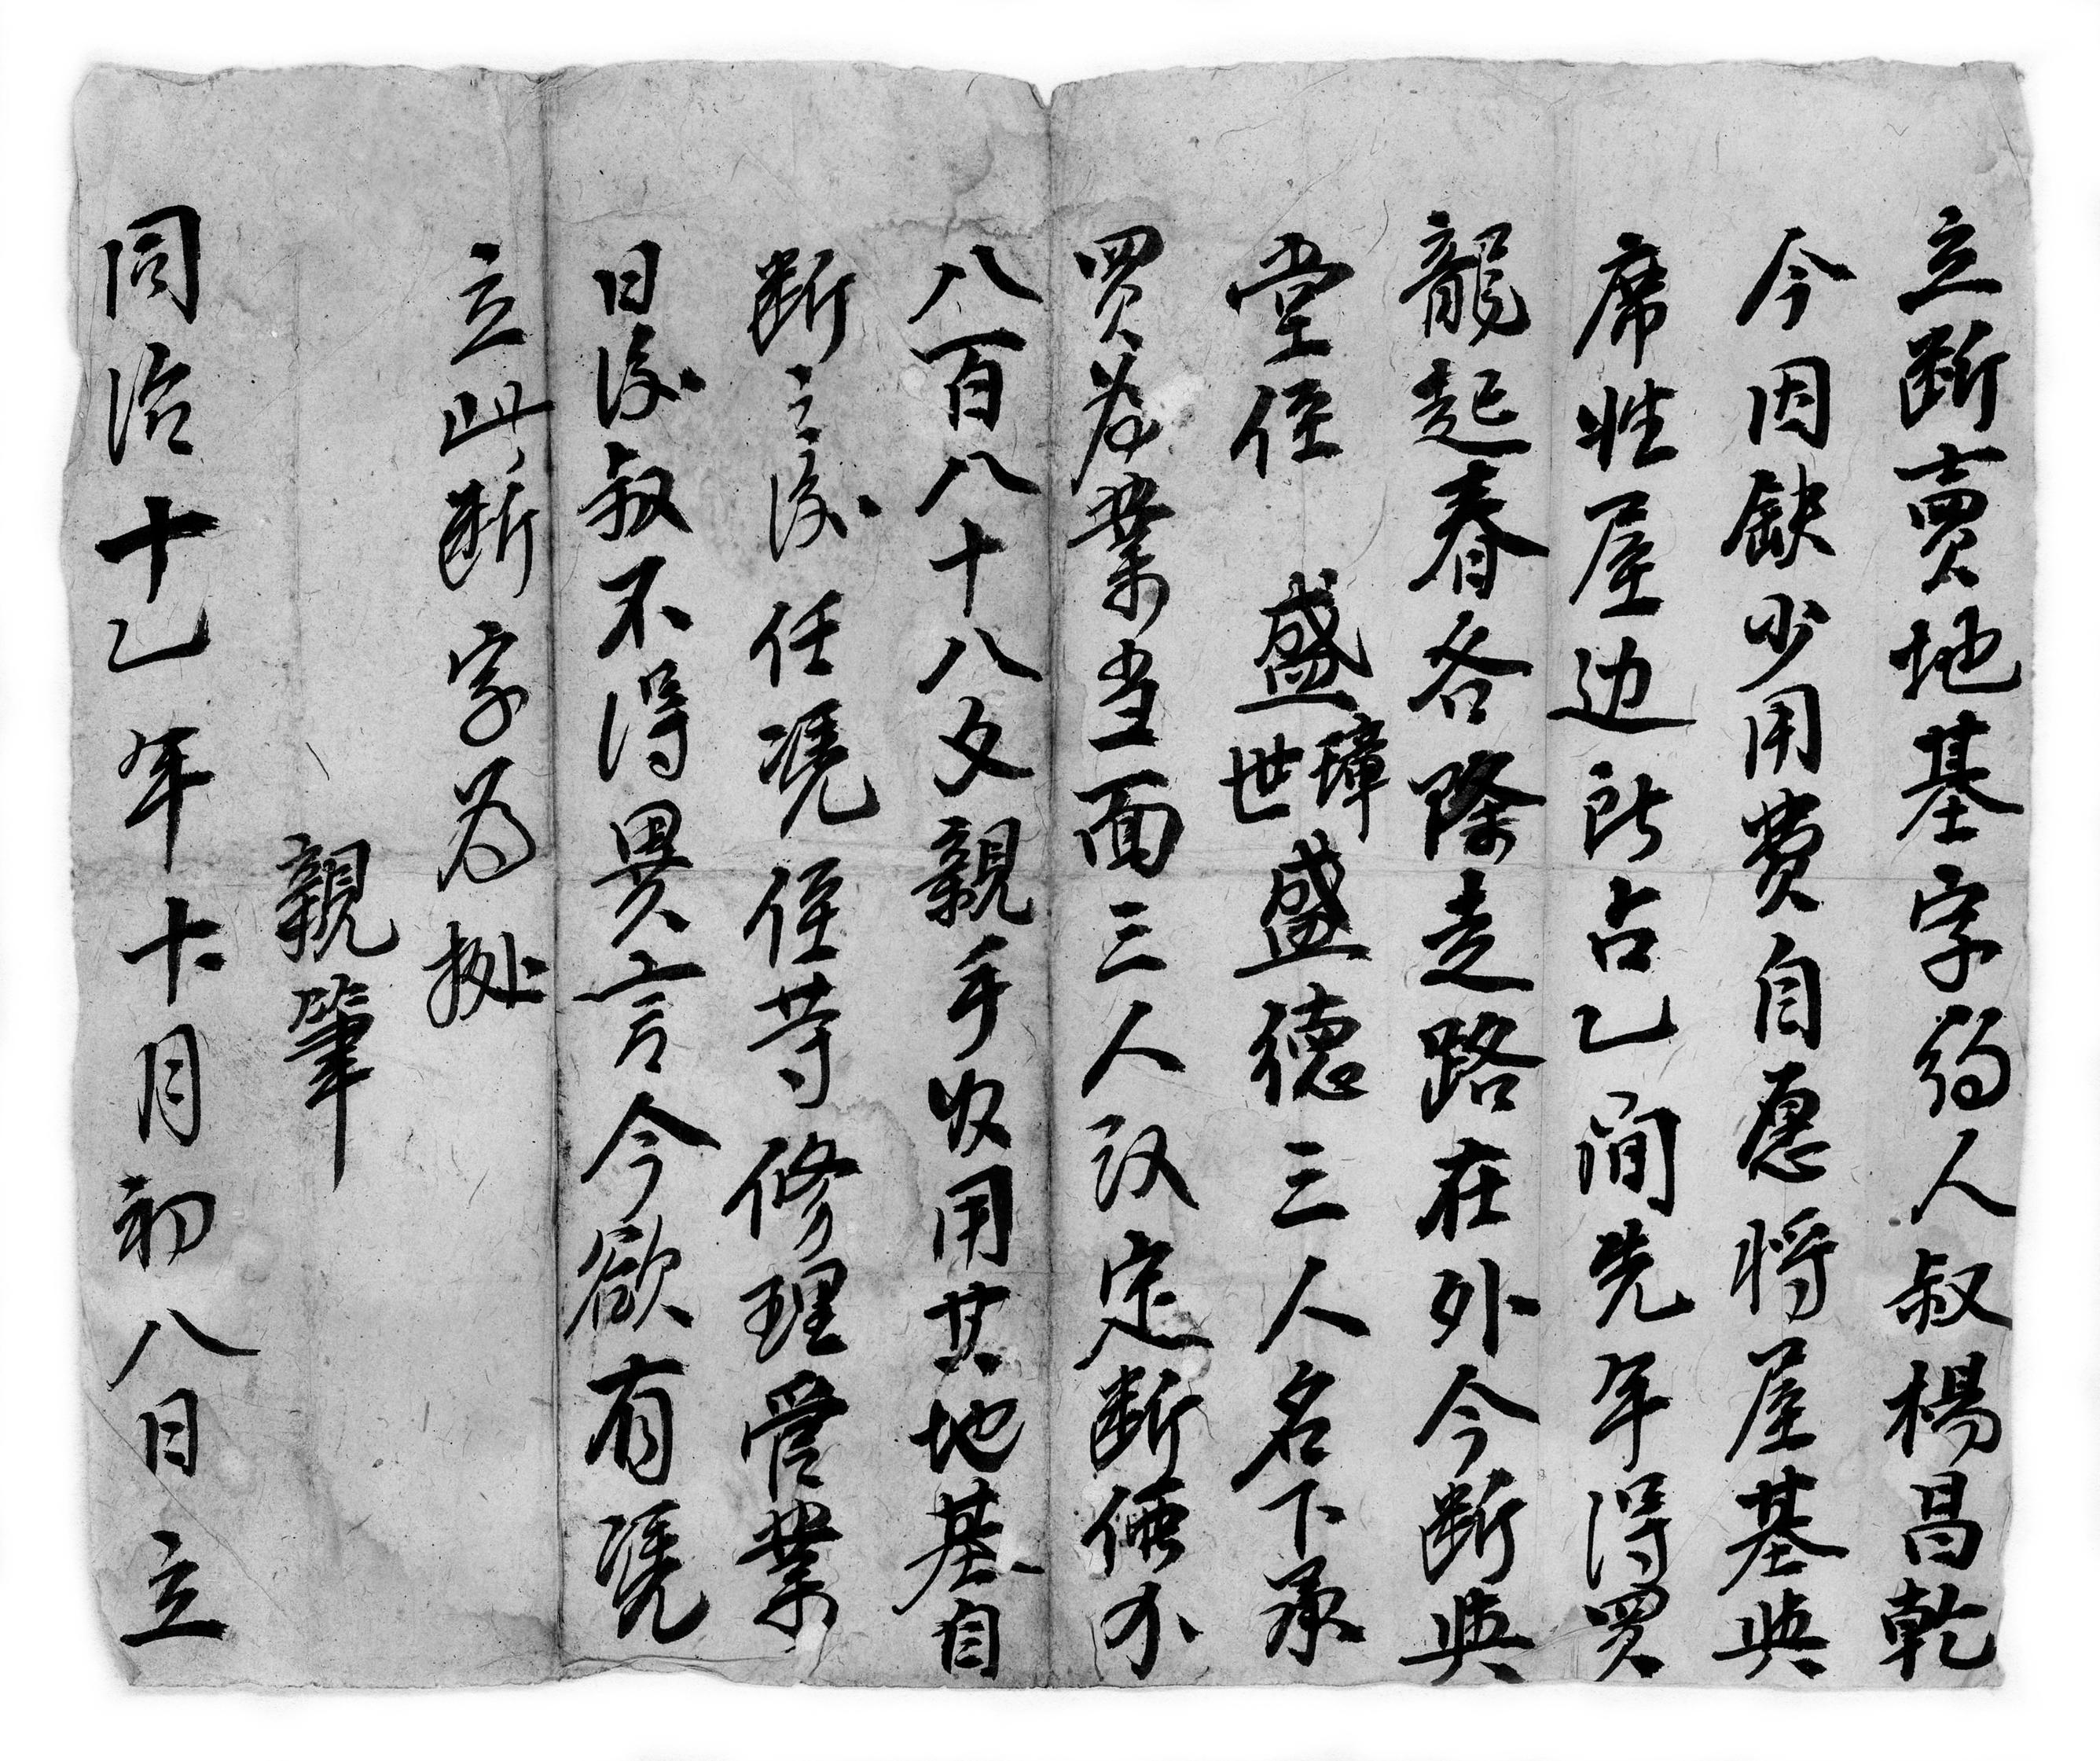 立断賣地基字约人叔楊昌乾
今因缺少用費自愿将屋基與
席姓屋边所占乙间先年得買
龍起春各除走路在外今断與
堂侄 盛璋世盛德三人名下承
買为業当面三人议定断価不
八百八十八文親手收用其地基自
断之後任凭侄等修理管業
日後叔不得異言今欲有凭
立此断字为㨿
親筆
同治十乙年十月初八日立